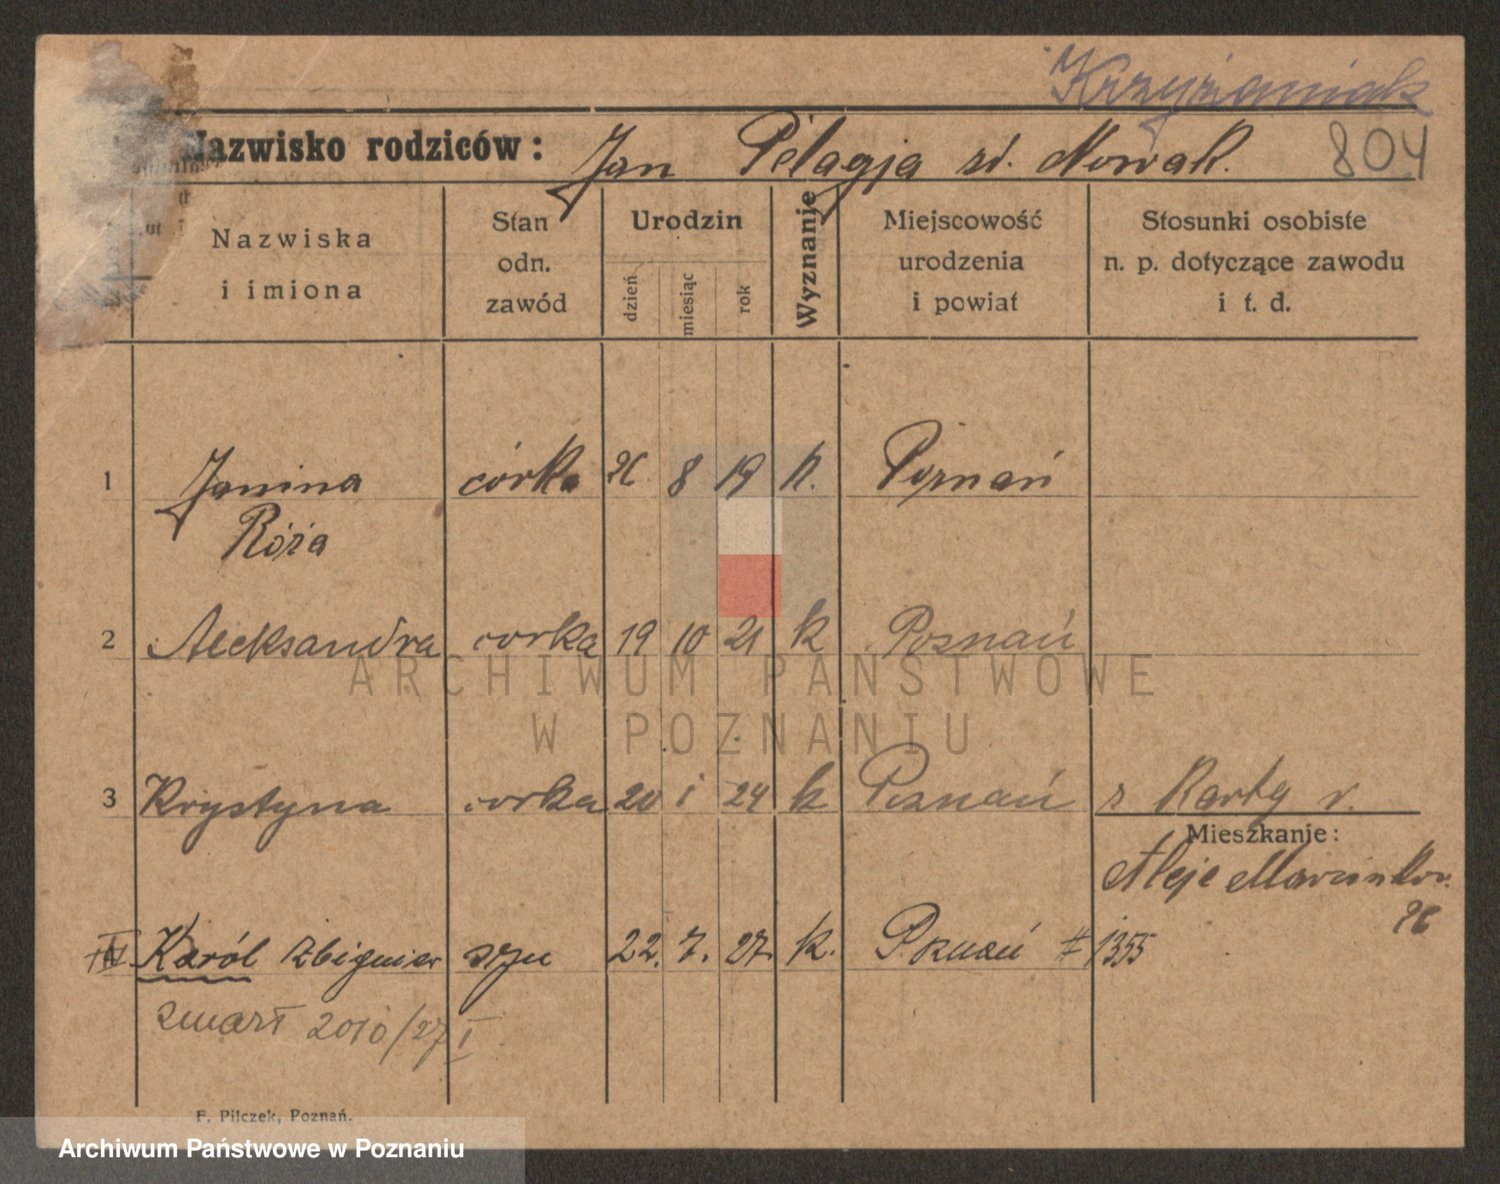 Krzyżaniak
Nazwisko rodziców: Jan Pelagja zd. Nowak. 804
Nazwiska i imiona
Stan odn. zawód
Urodzin
dzień miesiąc rok
Wyznanie
Miejscowość urodzenia i powiat
Stosunki osobiste n. p. dotyczące zawodu i t. d.
1 Janina córka 26 8 19 k. Poznań
Róża
2 Aleksandra córka 19 10 21 k Poznań
ARCHIWUM PAŃSTWOWE
W POZNANIU
3 Krystyna córka 20 1 24 k Poznań z Karty r.
Mieszkanie:
Aleje Marcinkow.
26
IV Karól Zbigniew syn 22. 7. 27. k. Poznań # 1355
zmarł 2010/27 I
F. Pilczek, Poznań.
Archiwum Państwowe w Poznaniu